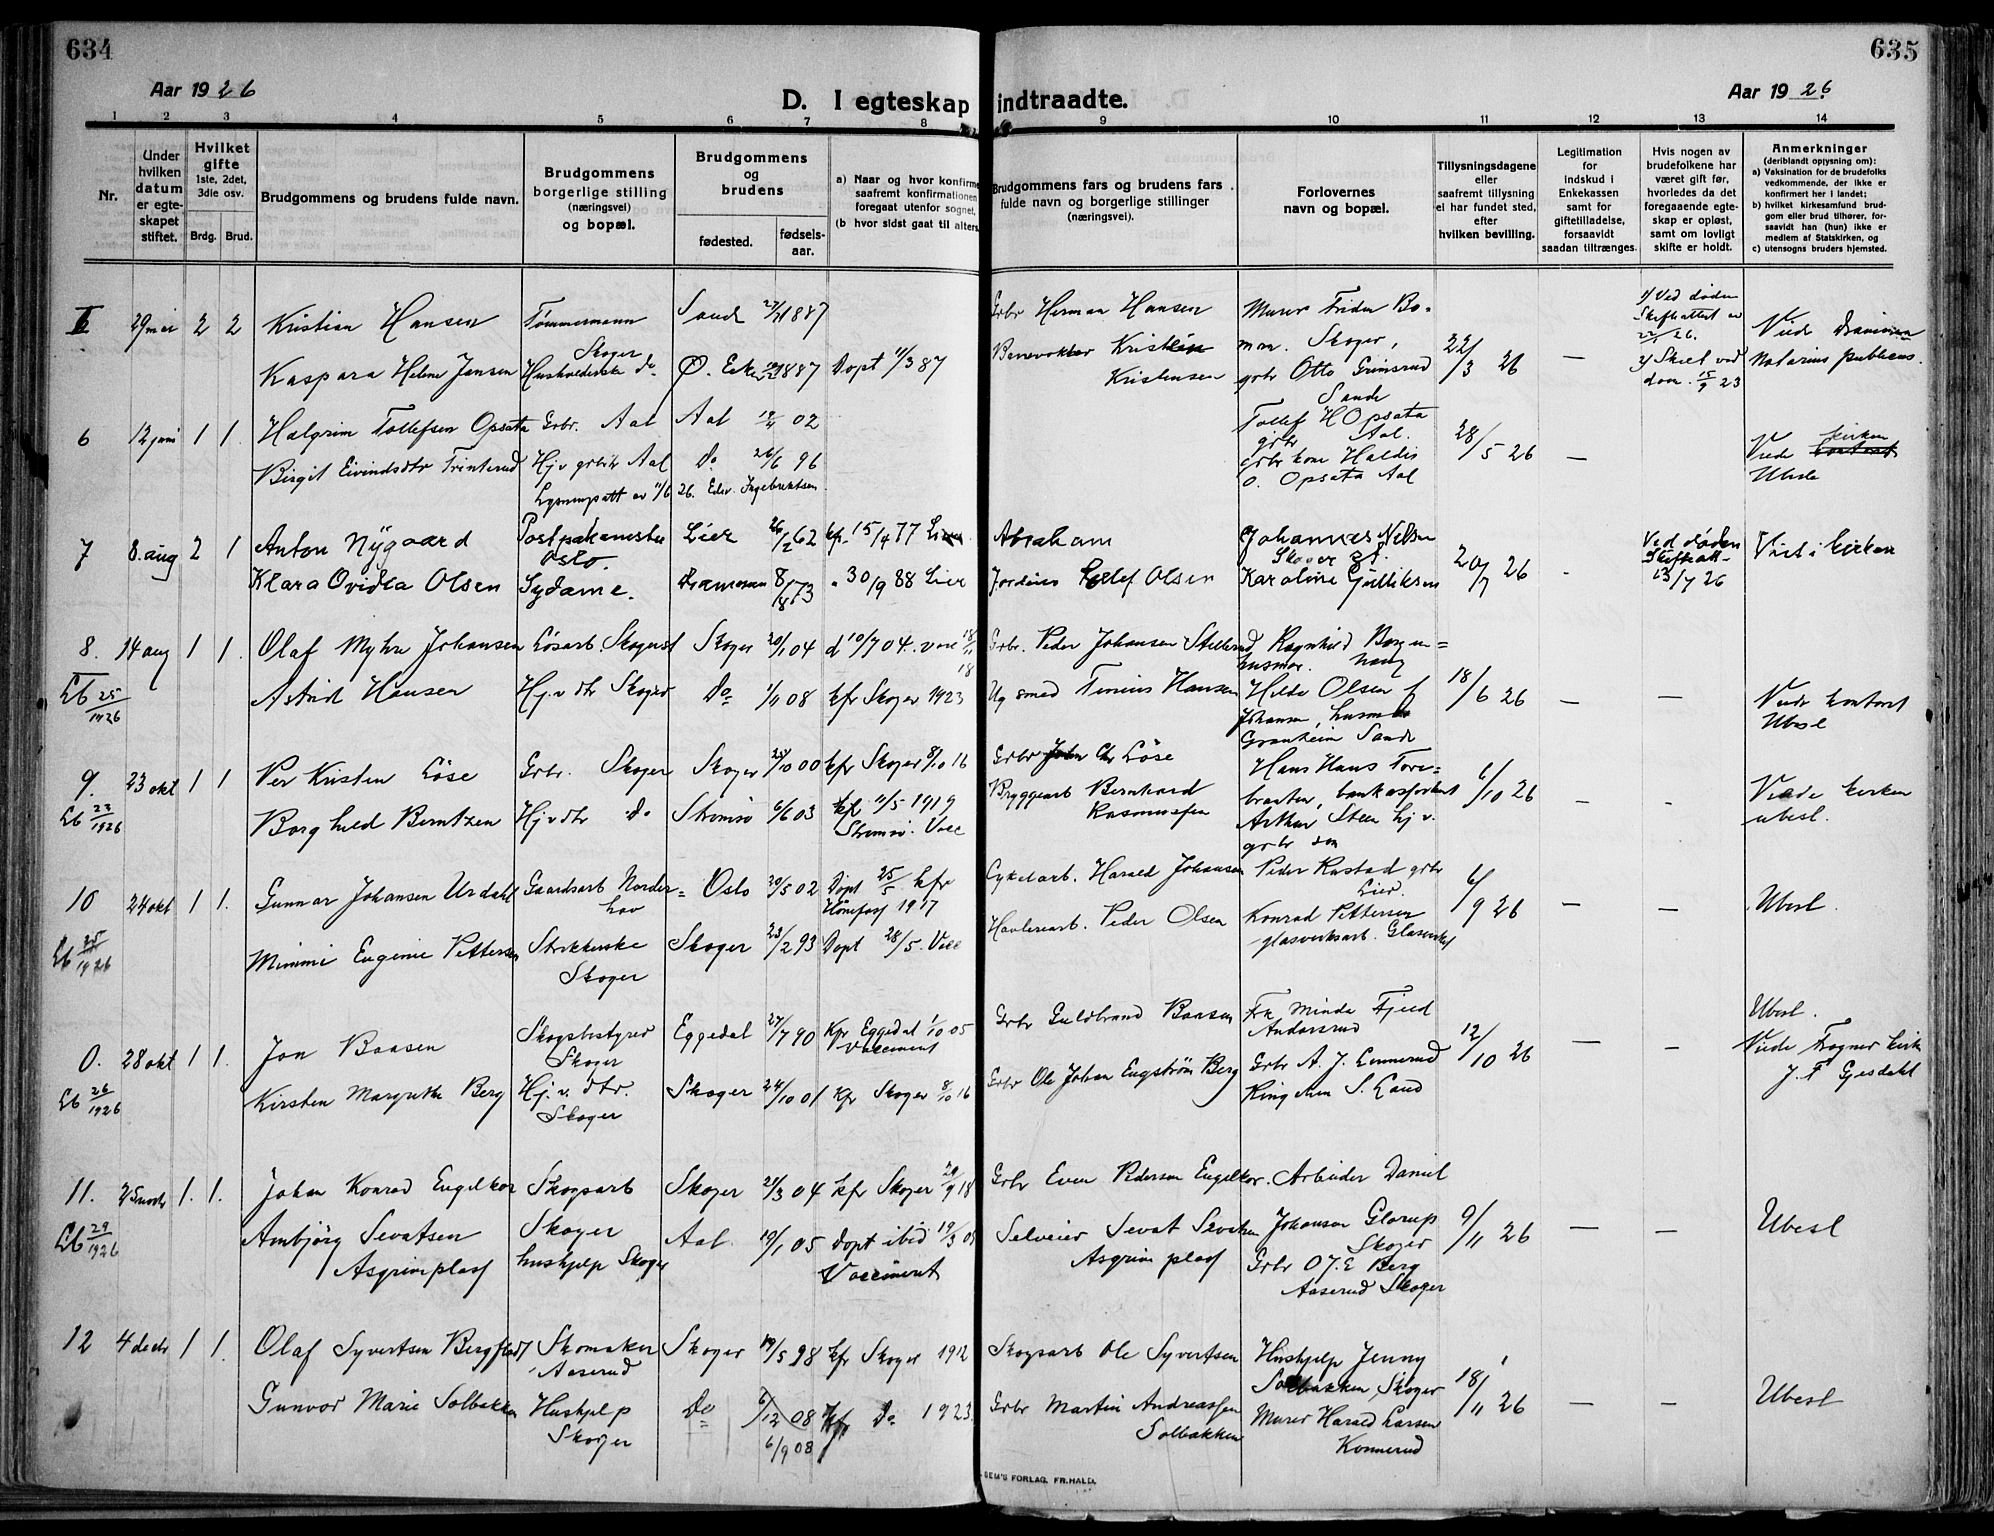 634
635
Aar 1926
D. I egteskap indtraadte.
Aar 1926
1 2 3 4 5 6 7 8 9 10 11 12 13 14
Nr.
Under hvilken datum er egteskapet stiftet.
Hvilket gifte 1ste, 2det, 3die osv.
Brdg. Brud.
Brudgommens og brudens fulde navn.
Brudgommens borgerlige stilling (næringsvei) og bopæl.
Brudgommens og brudens
fødested. fødsels-aar.
a) Naar og hvor konfirme
saafremt konfirmationen
foregaat utenfor sognet,
(b hvor sidst gaat til alters.
Brudgommens fars og brudens fars
fulde navn og borgerlige stillinger
(næringsvei).
Forlovernes
navn og bopæl.
Tillysningsdagene
eller
saafremt tillysning
ei har fundet sted,
efter
hvilken bevilling.
Legitimation
for
indskud i
Enkekassen
samt for
giftetilladelse,
forsaavidt
saadan tiltrænges.
Hvis nogen av
brudefolkene har
været gift før,
hvorledes da det
foregaaende egte-
skap er opløst,
samt om lovligt
skifte er holdt.
Anmerkninger
(deriblandt opysning om):
a) Vaksination for de brudefolks
vedkommende, der ikke er
konfirmert her i landet;
b) hvilket kirkesamfund brud-
gom eller brud tilhører, for-
saavidt han (hun) ikke er
medlem af Statskirken, og
c) utensogns bruders hjemsted.
29 mai 2 2 Kristian Hansen Tømmermann Skoger Sande 1887 Grbr Herman Hansen
Kaspara Helene Jensen Husholderske do Ø. Eker 1887 Døpt 11/3 87 Kristensen
Murer Fridon Bo-
mm. Skoger,
grbr Otto Grimsrud
Sande
22/3 26 —
1) Ved døden
Skifteattest av
26.
2) Skilt ved
dom. 15/9 23
Viede Drammen
Notarius publicus.
6 12 juni 1 1. Halgrim Tollefsen Opsata Grbr. Aal Aal 02
Birgit Eivindsdtr Trinterud Hj v grbr Aal Do 26/6 96
Lysningsatt av 11/6 26. Edv. Ingebriktsen
Tollef H Opsata
grbr Aal.
grbr kone Haldis
O. Opsata Aal
28/5 26 —
Viede kirken
Ubesl
7 8. aug 2 1 Anton Nygaard Oslo. Lier 26/2 62 kfr 15/4 77 Lier Abraham
Klara Ovidia Olsen Sydame. Drammen 8/8 73 " 30/9 88 Lier Olsen
Johannes Nilsen
Skoger
Karoline Gulliksen
20/7 26
Ved døden
Skifteatt-
13/7 26
Viet i kirken
8. 14 aug 1 1. Olaf Myhre Johansen Løsarb. Skoger Skoger 20/1 04 d 10/7 04. vacc 18/11 18 Grbr. Peder Johansen Stillerud
Lb 25/1926 Astrid Hansen Hj. v dtr Skoger Do 1/11 08 kfr Skoger 1923 Ug smed Tinius Hansen
Ragnhild Borgen=
husmor. haug
Hilda Olsen f
Johansen, husmor
Granheim Sande
18/6 26 — —
Viede kontoret
Ubesl
9. 23 okt 1 1 Per Kristen Løse Grbr. Skoger Skoger 25/10 00 kfr Skoger 8/10 16 Grbr Chr Løse
Lb 23/1926 Borghild Berntzen Hj v dtr do Strømsø 6/6 03 kfr 11/5 1919 Strømsø. Vacc Bryggearb Bernhard Rasmussen
Hans Hans Tore=
braaten,
Arthur Steen hj v.
grbr søn
6/10 26 — -
Viede kirken
ubesl.
10 24 okt 1 1. Gunnar Johansen Urdahl Gaardsarb Norder= hov Oslo 20/5 02 Døpt 25/5 kfr Hønefoss 1917 Cykelarb. Harald Johansen
Lb 25/1926 Mimmi Eugenie Pettersen Strikkerske Skoger Skoger 23/2 93 Døpt 28/5. Vacc Peder Olsen
Peder Rustad grbr
Lier.
Konrad Pettersen
glasverksarb. Glasverket
6/9 26 — —
Ubesl.
0. 28 okt 1 1. Jon Baasen Skogbestyrer Skoger Eggedal 27/7 90 Kfr Eggedal 1/10 05 Vaccinert Grbr Guldbrand Baasen
Lb 26/1926 Kirsten Margrethe Berg Hj. v. dtr. Skoger Skoger 24/10 01 kfr Skoger 8/10 16 Grbr Ole Johan Engstrøm Berg
Fru Minda Fjeld
Andersrud
Grbr A. J. Linnerud
12/10 26 — —
Ubesl.
Viede Frogner kirke
J. F Gjesdahl
11. 25 novbr 1. 1. Johan Konrad Engelkor Skogsarb Skoger 04 kfr Skoger 20/9 18 Grbr Even Pedersen Engelkor.
Lb 29/1926 Ambjørg Sevatsen Asgrimplass Skoger hushjelp Skoger Aal. 19/1 05 døpt ibid 19/3 05 Vaccinert Selveier Sevat Asgrimplass
Arbeider Daniel
Johansen Glorup
Skoger
Grbr O J. E Berg
Aaserud Skoger
9/11 26 — —
Ubesl
12 4 decbr 1 1. Olaf Syvertsen Bergflødt Skomaker Aaserud Skoger 19/5 98 kfr Skoger 1912 Skogsarb Ole Syvertsen
Gunvor Marie Solbakken Hushjelp Skoger Do 6/12 08 kfr Do 1923. Grbr Martin Andreassen Solbakken
6/9 08
Hushjelp Jenny
Solbakken, Skoger
Murer Harald Larsen
Konnerud
18/11 26 — —
Ubesl
SEM'S FORLAG. FR.HALD.